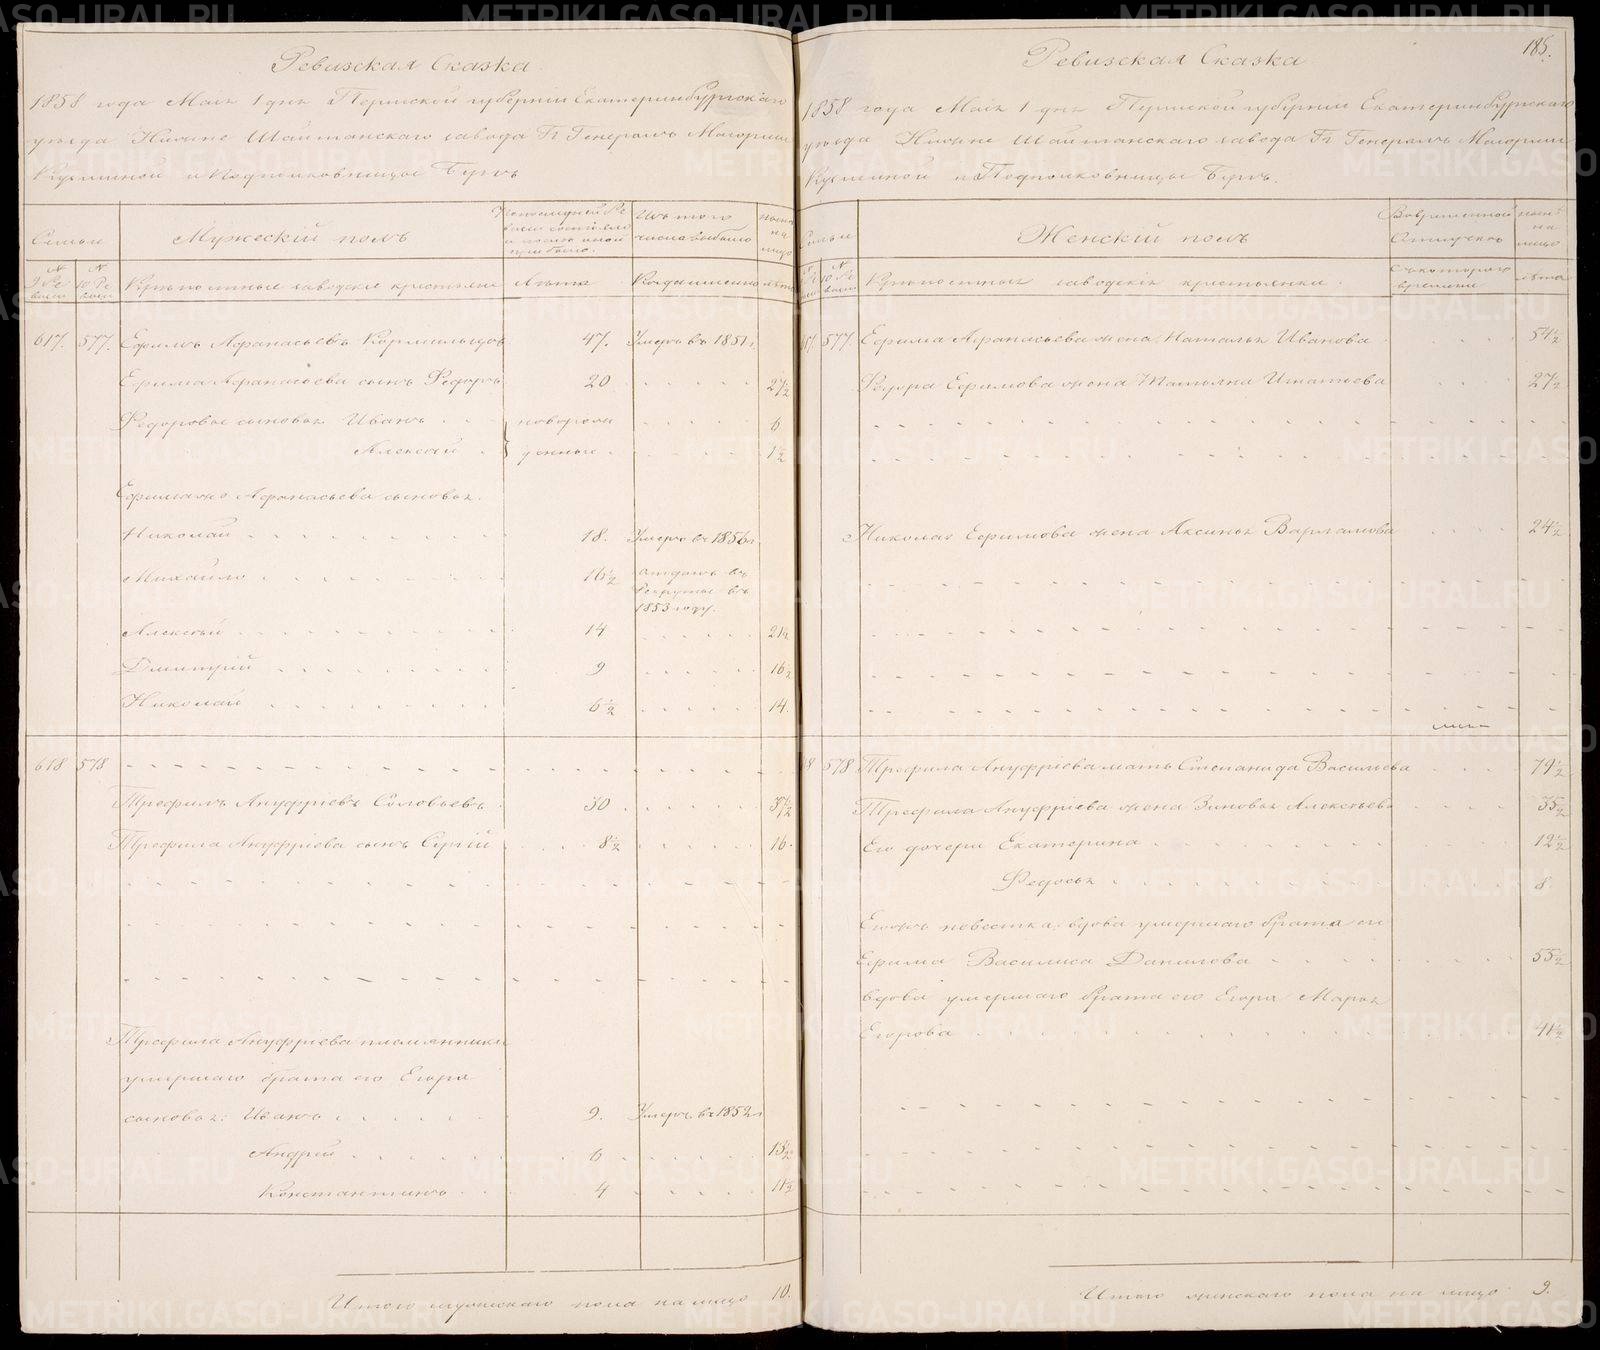 Ревизская Сказка
1858 года Маія 1 дня Пермской губерніи Екатеринбургскаго
уѣзда Нижне Шайтанскаго завода Гг Генералъ Маіорши
Кузьминой и Подполковницы Бергъ
Семьи
Мужескій полъ
Изъ того числа выбыло
нынѣ на лицо
№ 9 Ревизіи
№ 10 Ревизіи
Крѣпостные заводскіе крестьяне
Лѣта
Когда именно
лѣта
617. 577. Ефимъ Афанасьевъ Кормильцовъ 47. Умеръ въ 1851 г.
Ефима Афанасьева сынъ Федоръ 20 27½
Федоровы сыновья Иванъ новорож 6
Алексѣй денные 1½
Ефима же Афанасьева сыновья.
Николай 18. Умеръ въ 1856 г.
Михайло 16½ отданъ въ
Рекруты въ
1853 году.
Алексѣй 14 21½
Дмитрій 9 16½
Николай 6½ 14.
618 578
Трефилъ Ануфріевъ Соловьевъ 30 37½
Трефила Ануфріева сынъ Сергій 8½ 16.
Трефила Ануфріева племянники
умершаго брата его Егора
сыновья: Иванъ 9. Умеръ въ 1852 г.
Андрей 6 13½
Константинъ 4 11½
Итого мужескаго пола на лицо 10.
185.
Ревизская Сказка
1858 года Маія 1 дня Пермской губерніи Екатеринбургскаго
уѣзда Нижне Шайтанскаго завода Гг Генералъ Маіорши
Кузьминой и Подполковницы Бергъ.
Семьи
Женскій полъ
Во временной отлучкѣ
нынѣ на лицо
№ 10 Ревизіи
Крѣпостныя заводскія крестьянки.
Съ котораго времени
лѣта
577 Ефима Афанасьева жена Наталья Иванова 54½
Федора Ефимова жена Татьяна Игнатьева 27½
Николая Ефимова жена Аксинья Варламова 24½
578 Трефила Ануфріева мать Степанида Васильева 79½
Трефила Ануфріева жена Зиновья Алексѣева 35½
Его дочери Екатерина 12½
Федосья 8.
Егожъ невестка, вдова умершаго брата его
Ефима Василиса Данилова 55½
вдова умершаго брата его Егора Марья
Егорова 41½
Итого женскаго пола на лицо 9.
METRIKI.GASO-URAL.RU